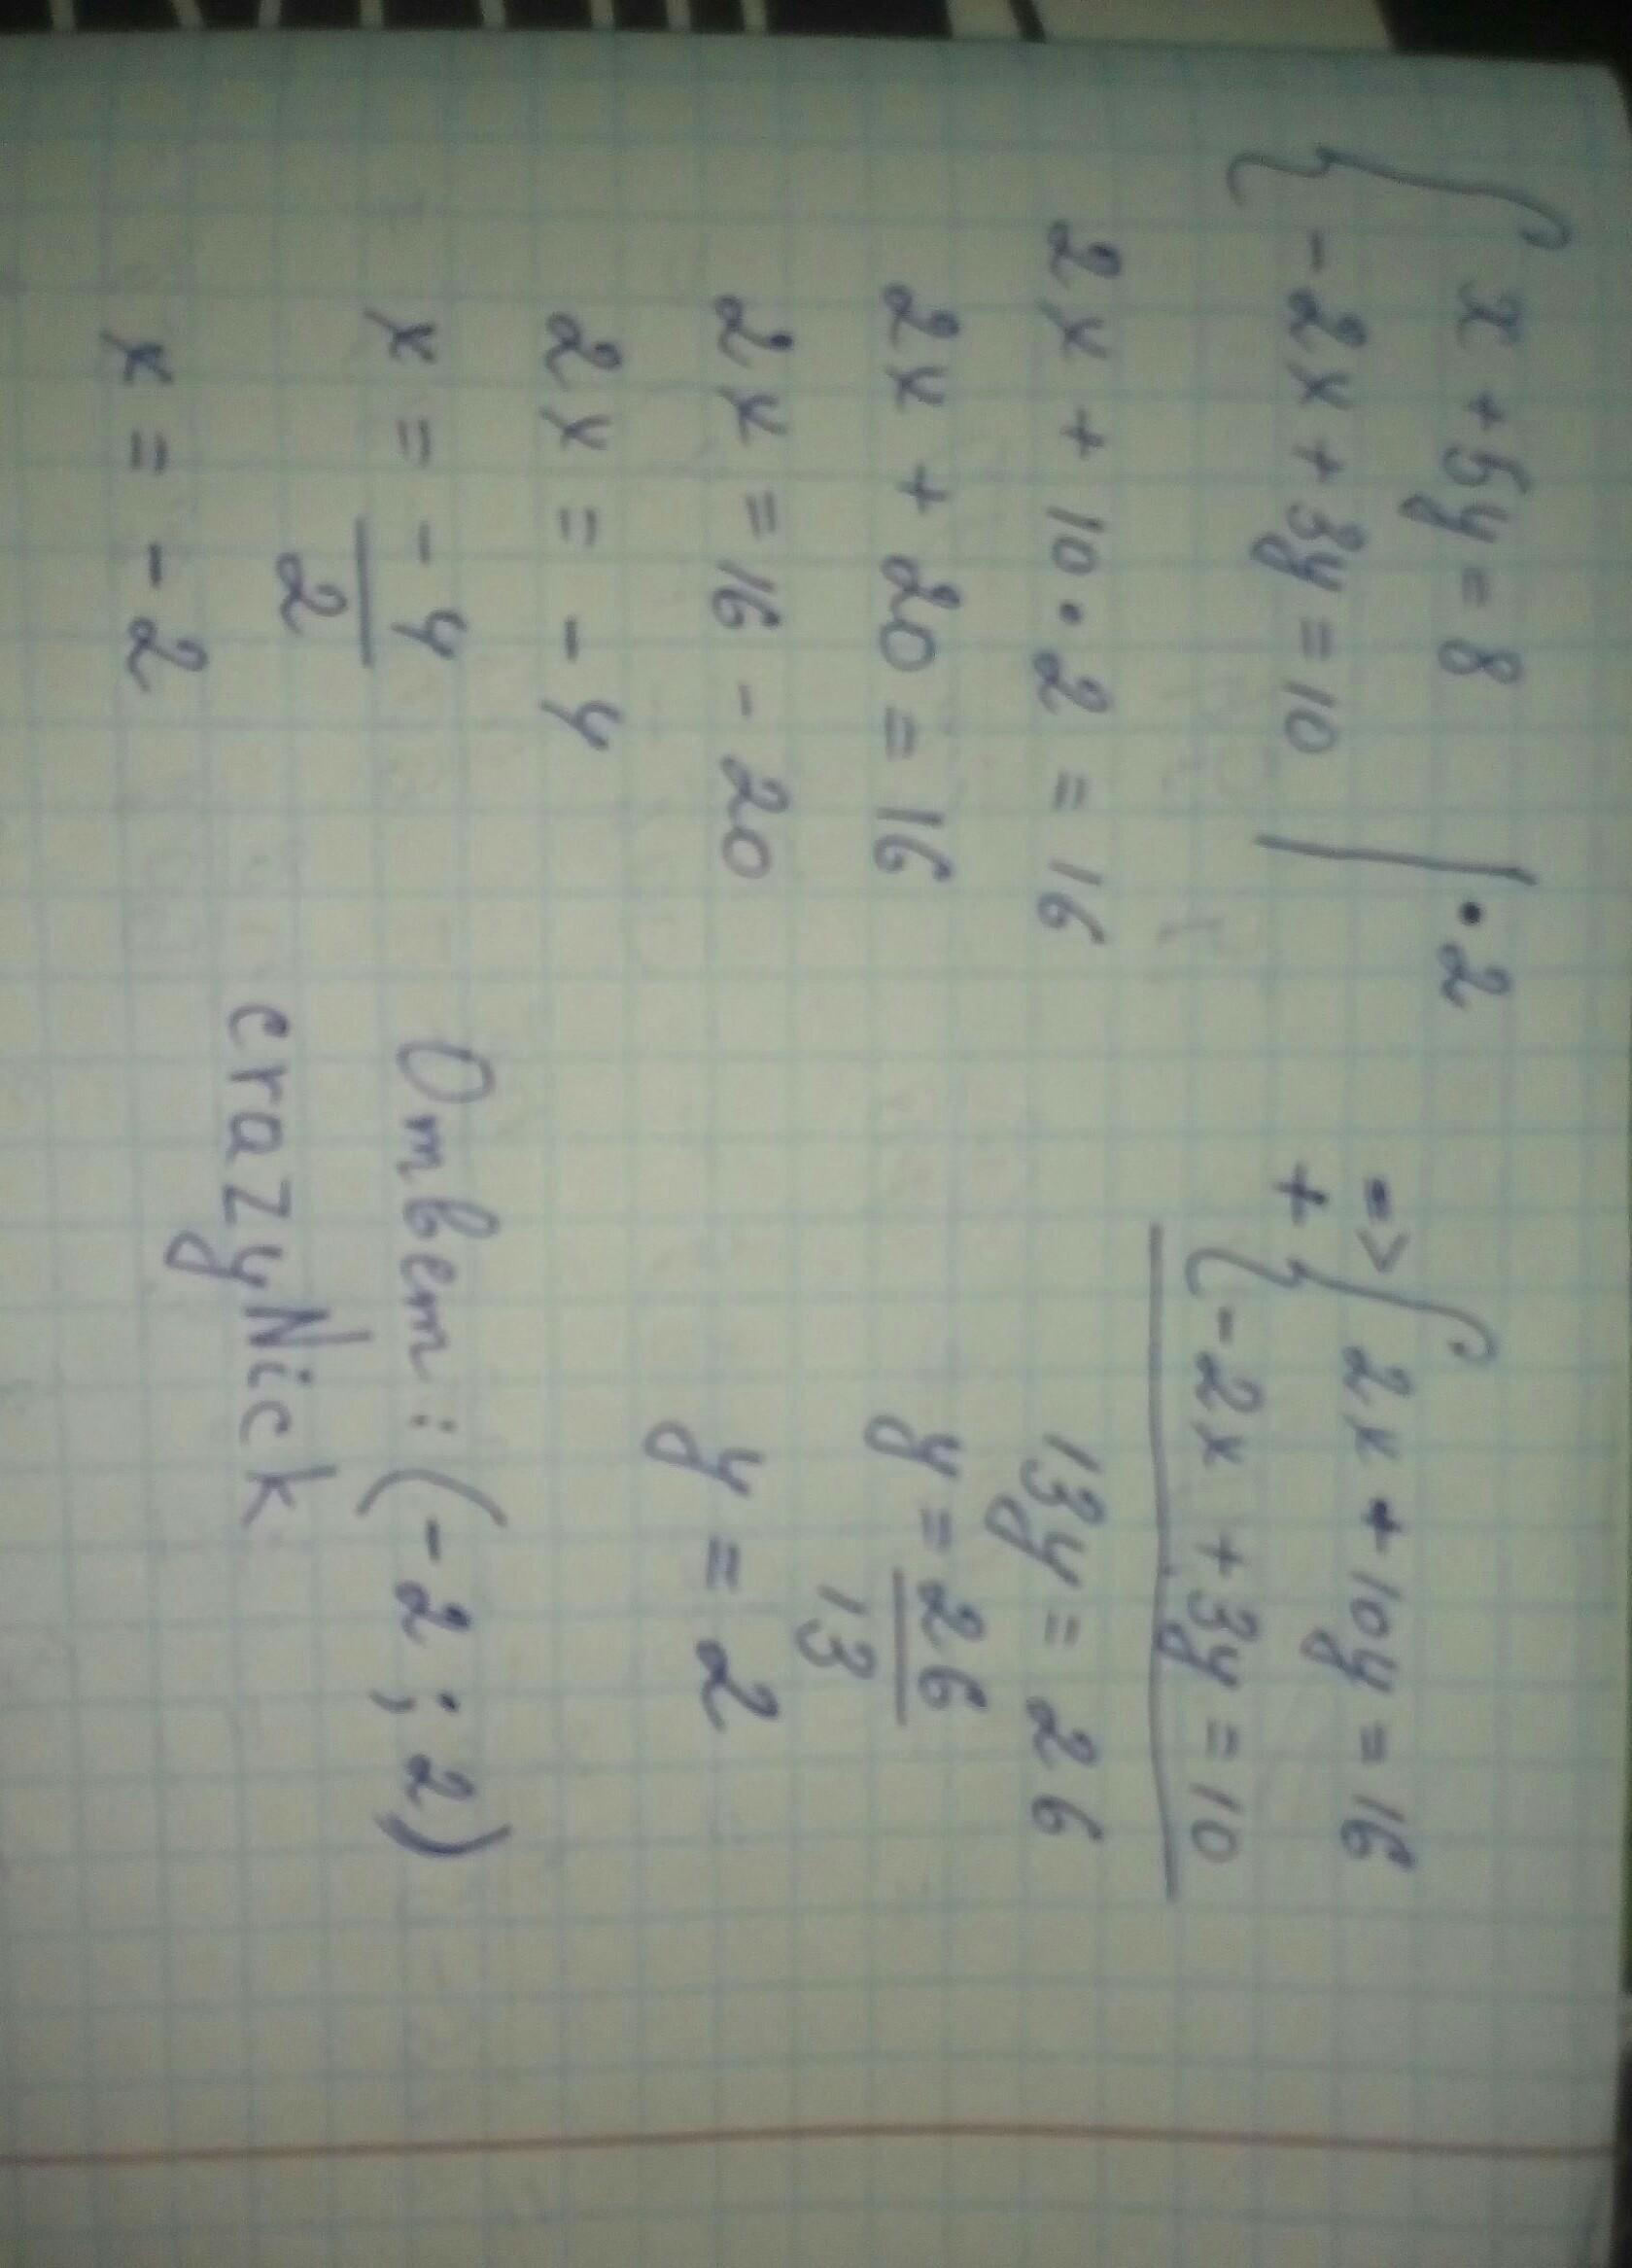 { x + 5y = 8 | · 2
-2x + 3y = 10
=> { 2x + 10y = 16
+ -2x + 3y = 10
13y = 26
y = 26/13
y = 2
2x + 10 · 2 = 16
2x + 20 = 16
2x = 16 - 20
2x = -4
x = -4/2
x = -2
Ответ: (-2 ; 2)
crazyNick